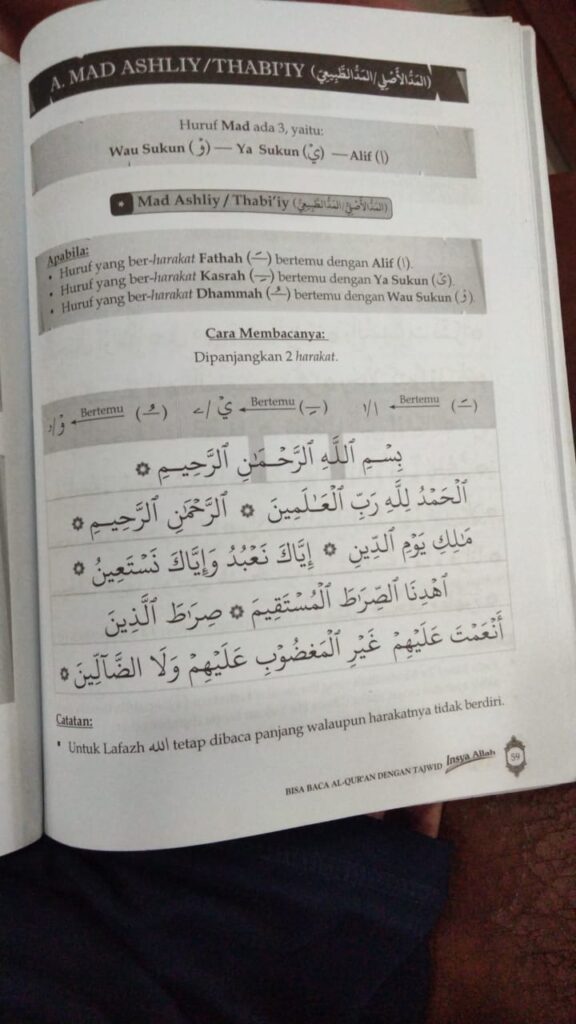 A. MAD ASHLIY/THABI'IY (المَدُّ الأَصْلِي/المَدُّ الطَّبِيعِيّ)
Huruf Mad ada 3, yaitu:
Wau Sukun (وْ) — Ya Sukun (يْ) — Alif (ا)
Mad Ashliy / Thabi'iy (المَدُّ الأَصْلِي/المَدُّ الطَّبِيعِيّ)
Apabila:
• Huruf yang ber-harakat Fathah (ـَ) bertemu dengan Alif (ا).
• Huruf yang ber-harakat Kasrah (ـِ) bertemu dengan Ya Sukun (يْ).
• Huruf yang ber-harakat Dhammah (ـُ) bertemu dengan Wau Sukun (وْ).
Cara Membacanya:
Dipanjangkan 2 harakat.
(ـَ) Bertemu ا/ا (ـِ) Bertemu يْ/ے (ـُ) Bertemu وْ/و
بِسْمِ ٱللَّهِ ٱلرَّحْمَـٰنِ ٱلرَّحِيمِ ۞
ٱلْحَمْدُ لِلَّهِ رَبِّ ٱلْعَـٰلَمِينَ ۞ ٱلرَّحْمَـٰنِ ٱلرَّحِيمِ ۞
مَـٰلِكِ يَوْمِ ٱلدِّينِ ۞ إِيَّاكَ نَعْبُدُ وَإِيَّاكَ نَسْتَعِينُ ۞
ٱهْدِنَا ٱلصِّرَٰطَ ٱلْمُسْتَقِيمَ ۞ صِرَٰطَ ٱلَّذِينَ
أَنْعَمْتَ عَلَيْهِمْ غَيْرِ ٱلْمَغْضُوبِ عَلَيْهِمْ وَلَا ٱلضَّآلِّينَ ۞
Catatan:
• Untuk Lafazh الله tetap dibaca panjang walaupun harakatnya tidak berdiri.
BISA BACA AL-QUR'AN DENGAN TAJWID Insya Allah 59